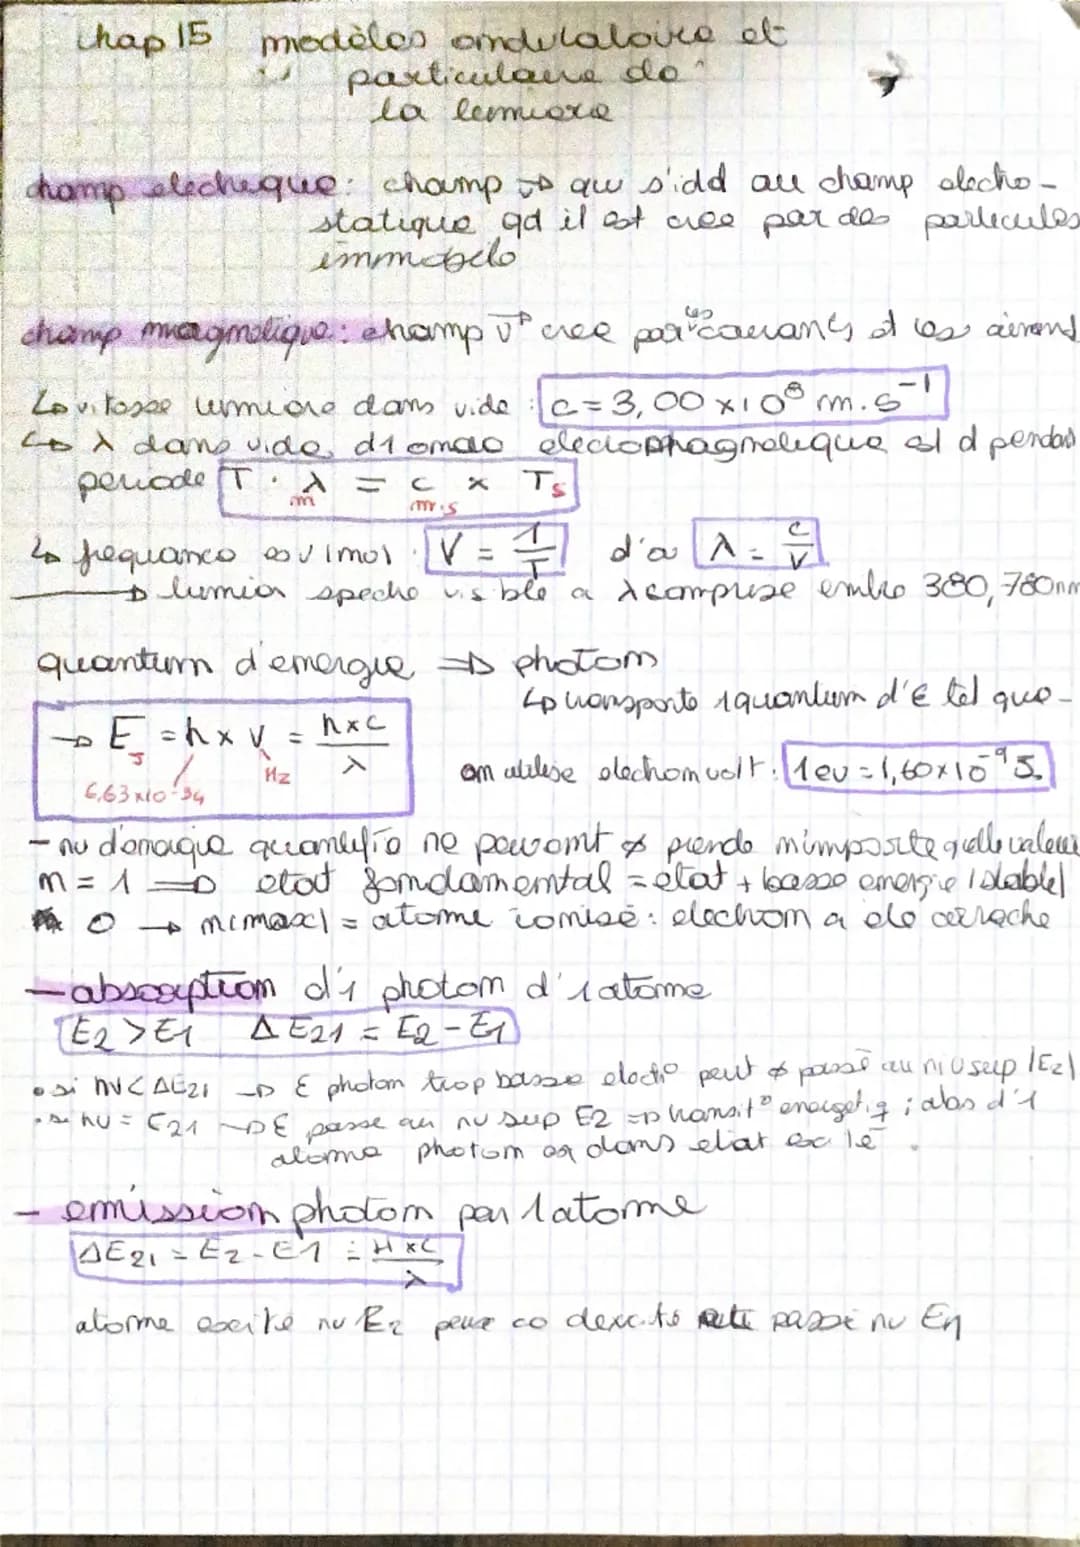 chap 15 modèles ondulatoire et
particulaire de
la lumiere
champ electrique: champ → qui s'idd au champ electro-
statique qd il est cree par des particules
immobile
champ magnetique: champ v→ cree par les courants et les aimend
↳ vitesse lumiere dans vide : c = 3,00 x 10⁸ m.s⁻¹
↳ λ dans vide d1 onde electromagnetique est d pendas
periode T . λ = c x T s
m m.s
↳ frequence est imol . V = 1/T d'ou λ = c/V
→ lumier spectre visble a λ comprise entre 380, 780nm
quantum d'energie ⇒ photon
↳ transporte 1 quantum d'E tel que -
→ E = h x V = h x c / λ
J Hz
6,63 x10⁻³⁴
on utilise electronvolt : 1 ev = 1,60 x 10⁻¹⁹ J.
- nv d'energie quantifie ne peuvent prendre n'importe quelle valeur
n = 1 ⇒ etat fondamental = etat + basse energie (stable)
0 → n(max) = atome ionisé : electron a ete arraché
- absorption d'1 photon d'1 atome
E2 > E1 Δ E21 = E2 - E1
• si hV < ΔE21 → E photon trop basse electr° peut passé au niv sup (E2)
• si hV = E21 → E passe au nv sup E2 ⇒ transit° energetiq ; abs d'1
atome photon dans etat
- emission photon par l'atome
ΔE21 = E2 - E1 = H x C / λ
atome excité nv E2 peut passé nv En